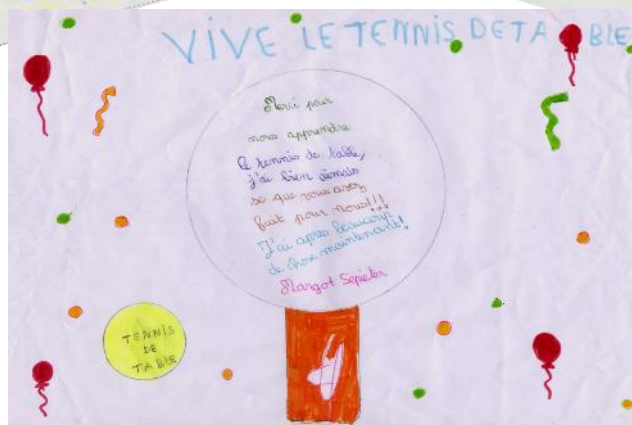 VIVE LE TENNIS DE TABLE
Merci pour
nous apprendre
le tennis de table,
j'ai bien aimais
se que vous avez
fait pour nous!!!
J'ai apris beaucoup
de chose maintenant!
Margot
TENNIS
DE
TABLE